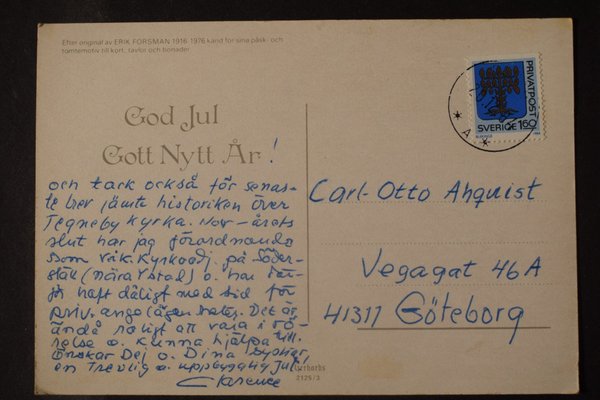 Efter original av ERIK FORSMAN 1916-1976 känd för sina påsk- och
tomtemotiv till kort, tavlor och bonader
God Jul
Gott Nytt År!
och tack också för senas-
te brev jämte historiken över
Tegneby Kyrka. Nov - årets
slut har jag förordnande
som vik. Kyrkoadj. på Söder-
slätt (nära Ystad) o. har
haft dåligt med tid för
priv. angelägenheter. Det är
ändå roligt att vara i rö-
relse o. kunna hjälpa till.
Önskar Dej o. Dina
en Trevlig o. uppbygglig Jul!
Clarence
PRIVATPOST
SVERIGE 160
A
Carl-Otto Ahquist
Vegagat 46A
41311 Göteborg
2125/3